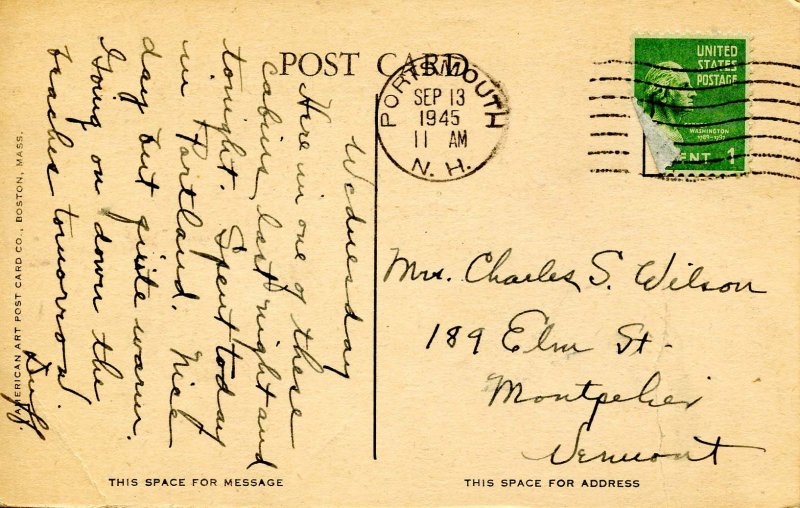 POST CARD
Wednesday
Here in one of these
cabins last night and
tonight. Spent today
in Portland. Nice
day but quite warm.
Going on down the
beaches tomorrow
AMERICAN ART POST CARD CO., BOSTON, MASS.
THIS SPACE FOR MESSAGE
PORTSMOUTH
SEP 13
1945
11 AM
N. H.
UNITED
STATES
POSTAGE
WASHINGTON
1789-1797
ENT 1
Mrs. Charles S. Wilson
189 Elm St.
Montpelier
Vermont
THIS SPACE FOR ADDRESS